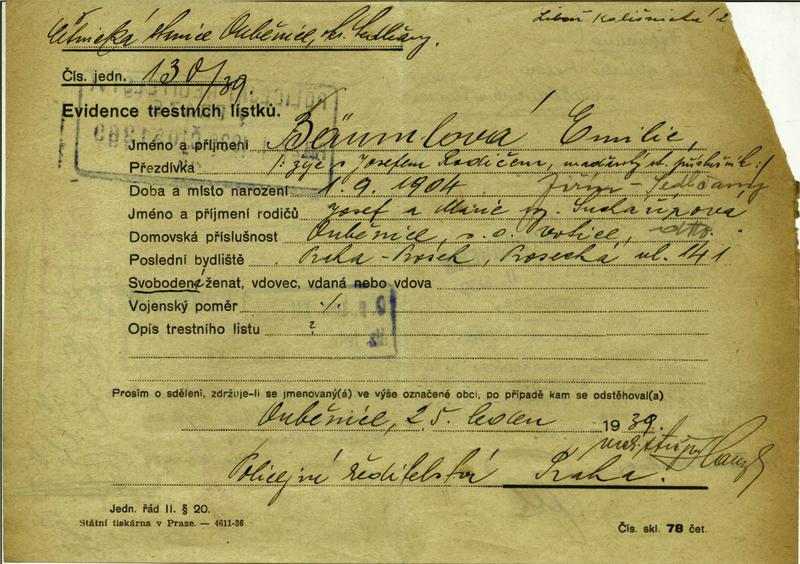 Četnická stanice Ouběnice, okr. Sedlčany.
Čís. jedn. 130/39.
Evidence trestních lístků.
Jméno a příjmení Bäumlová Emilie,
Přezdívka /: žije s Josefem Rodičem, maďarský st. příslušník :/
Doba a místo narození 1. 9. 1904 Jiřín - Sedlčany
Jméno a příjmení rodičů Josef a Marie
Domovská příslušnost Ouběnice, s. o. Votice, dtto.
Poslední bydliště Praha - Prosek, Prosecká ul. 141
Svobodená ženat, vdovec, vdaná nebo vdova
Vojenský poměr ·/·
Opis trestního listu ?
Prosím o sdělení, zdržuje-li se jmenovaný(á) ve výše označené obci, po případě kam se odstěhoval(a)
Ouběnice, 25. leden 1939.
Policejní ředitelství Praha.
Jedn. řád II. § 20.
Státní tiskárna v Praze. — 4611-36
Čís. skl. 78 čet.